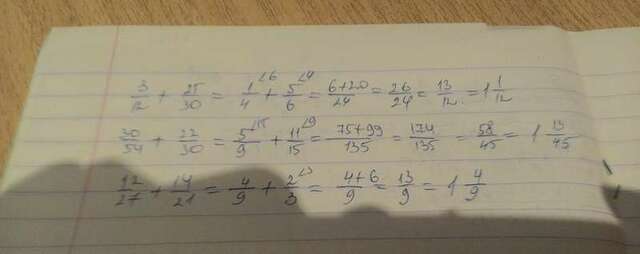 3/12 + 25/30 = 1/4 ∠6 + 5/6 ∠4 = 6+20/24 = 26/24 = 13/12 = 1 1/12
30/54 + 22/30 = 5/9 ∠15 + 11/15 ∠9 = 75+99/135 = 174/135 = 58/45 = 1 13/45
12/27 + 14/21 = 4/9 + 2/3 ∠3 = 4+6/9 = 13/9 = 1 4/9